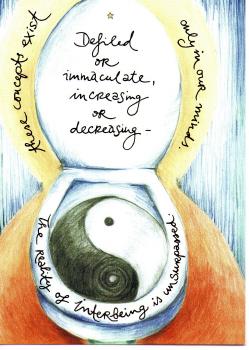 Defiled
or
immaculate,
increasing
or
decreasing -
these concepts exist
only in our minds.
The reality of interbeing is unsurpassed.